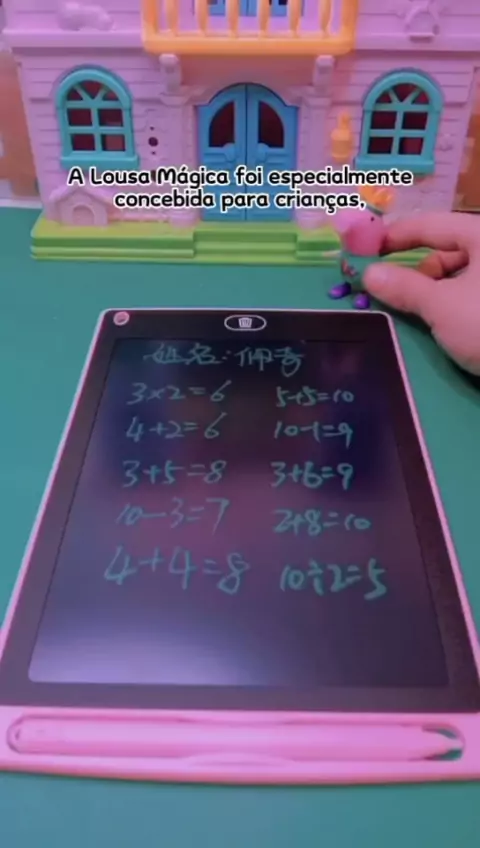 A Lousa Mágica foi especialmente
concebida para crianças,
姓名:佩奇
3×2=6 5+5=10
4+2=6 10-1=9
3+5=8 3+6=9
10-3=7 2+8=10
4+4=8 10÷2=5